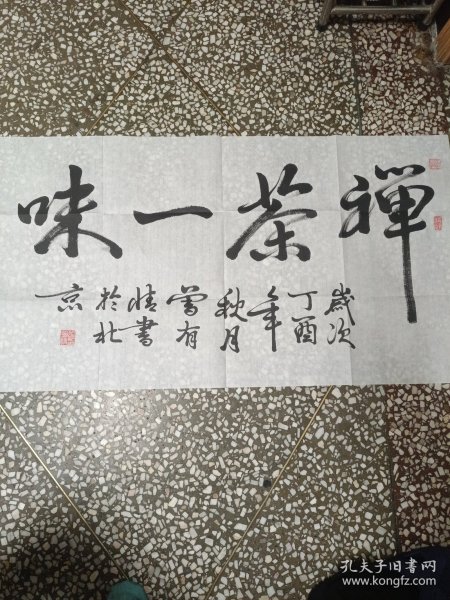 禪茶一味
歲次
丁酉
年
秋月
曾有
情書
於北
京
孔夫子旧书网
www.kongfz.com